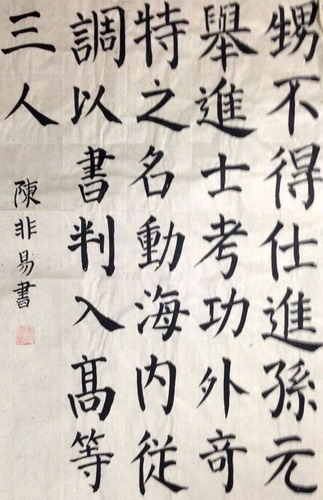 甥不得仕進孫元
舉進士考功外奇
特之名動海内從
調以書判入髙等
三人
陳非易書